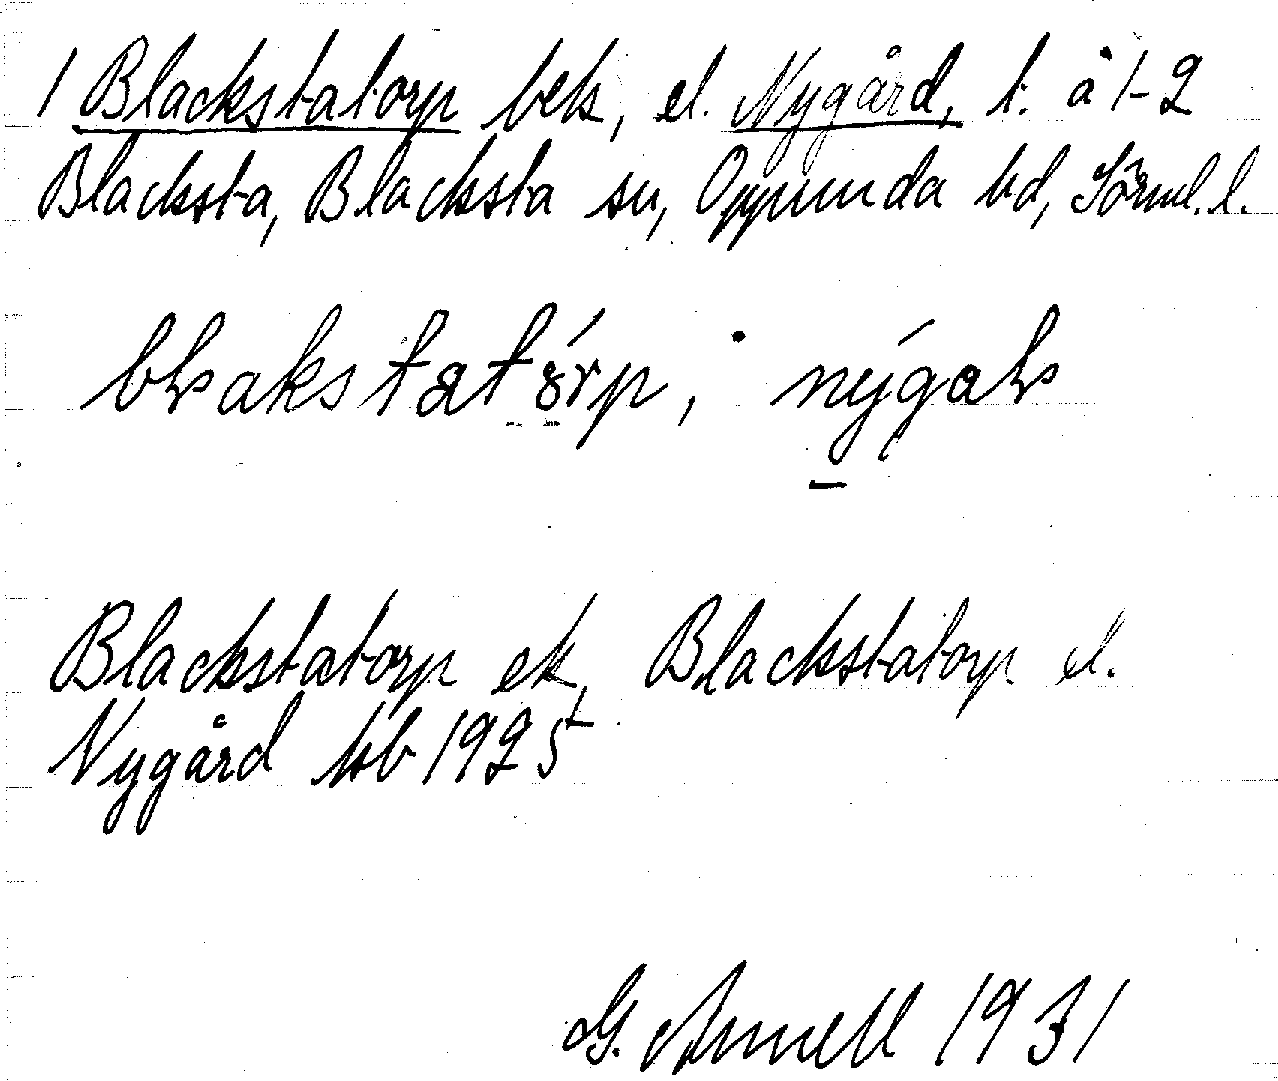 1 Blackstatorp bek, el. Nygård, t. å 1-2
Blacksta, Blacksta sn, Oppunda hd, Sörml. l.
Blackstatorp ek, Blackstatorp el.
Nygård kb 1925
G. Arnell 1931